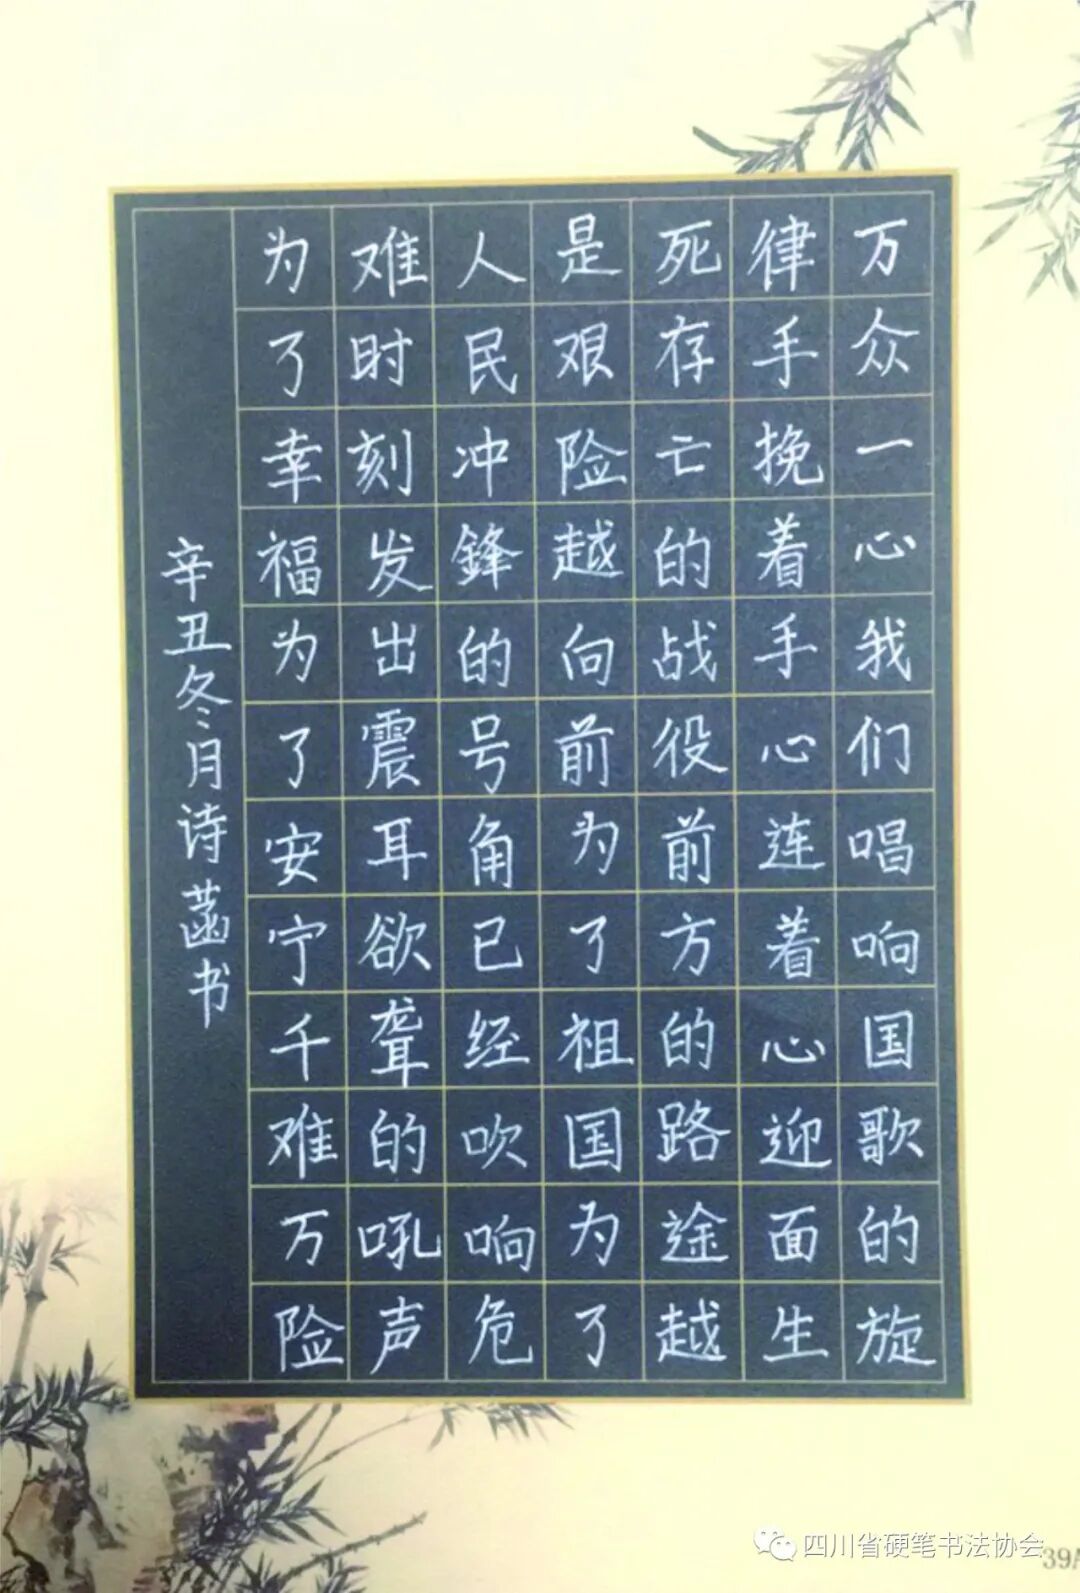 万众一心我们唱响国歌的旋
律手挽着手心连着心迎面生
死存亡的战役前方的路途越
是艰险越向前为了祖国为了
人民冲鋒的号角已经吹响危
难时刻发出震耳欲聋的吼声
为了幸福为了安宁千难万险
辛丑冬月诗菡书
四川省硬笔书法协会
39A